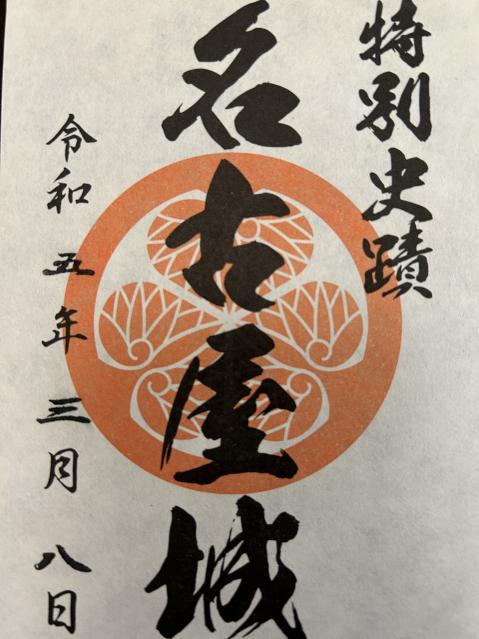 特別史蹟
名古屋城
令和五年三月八日